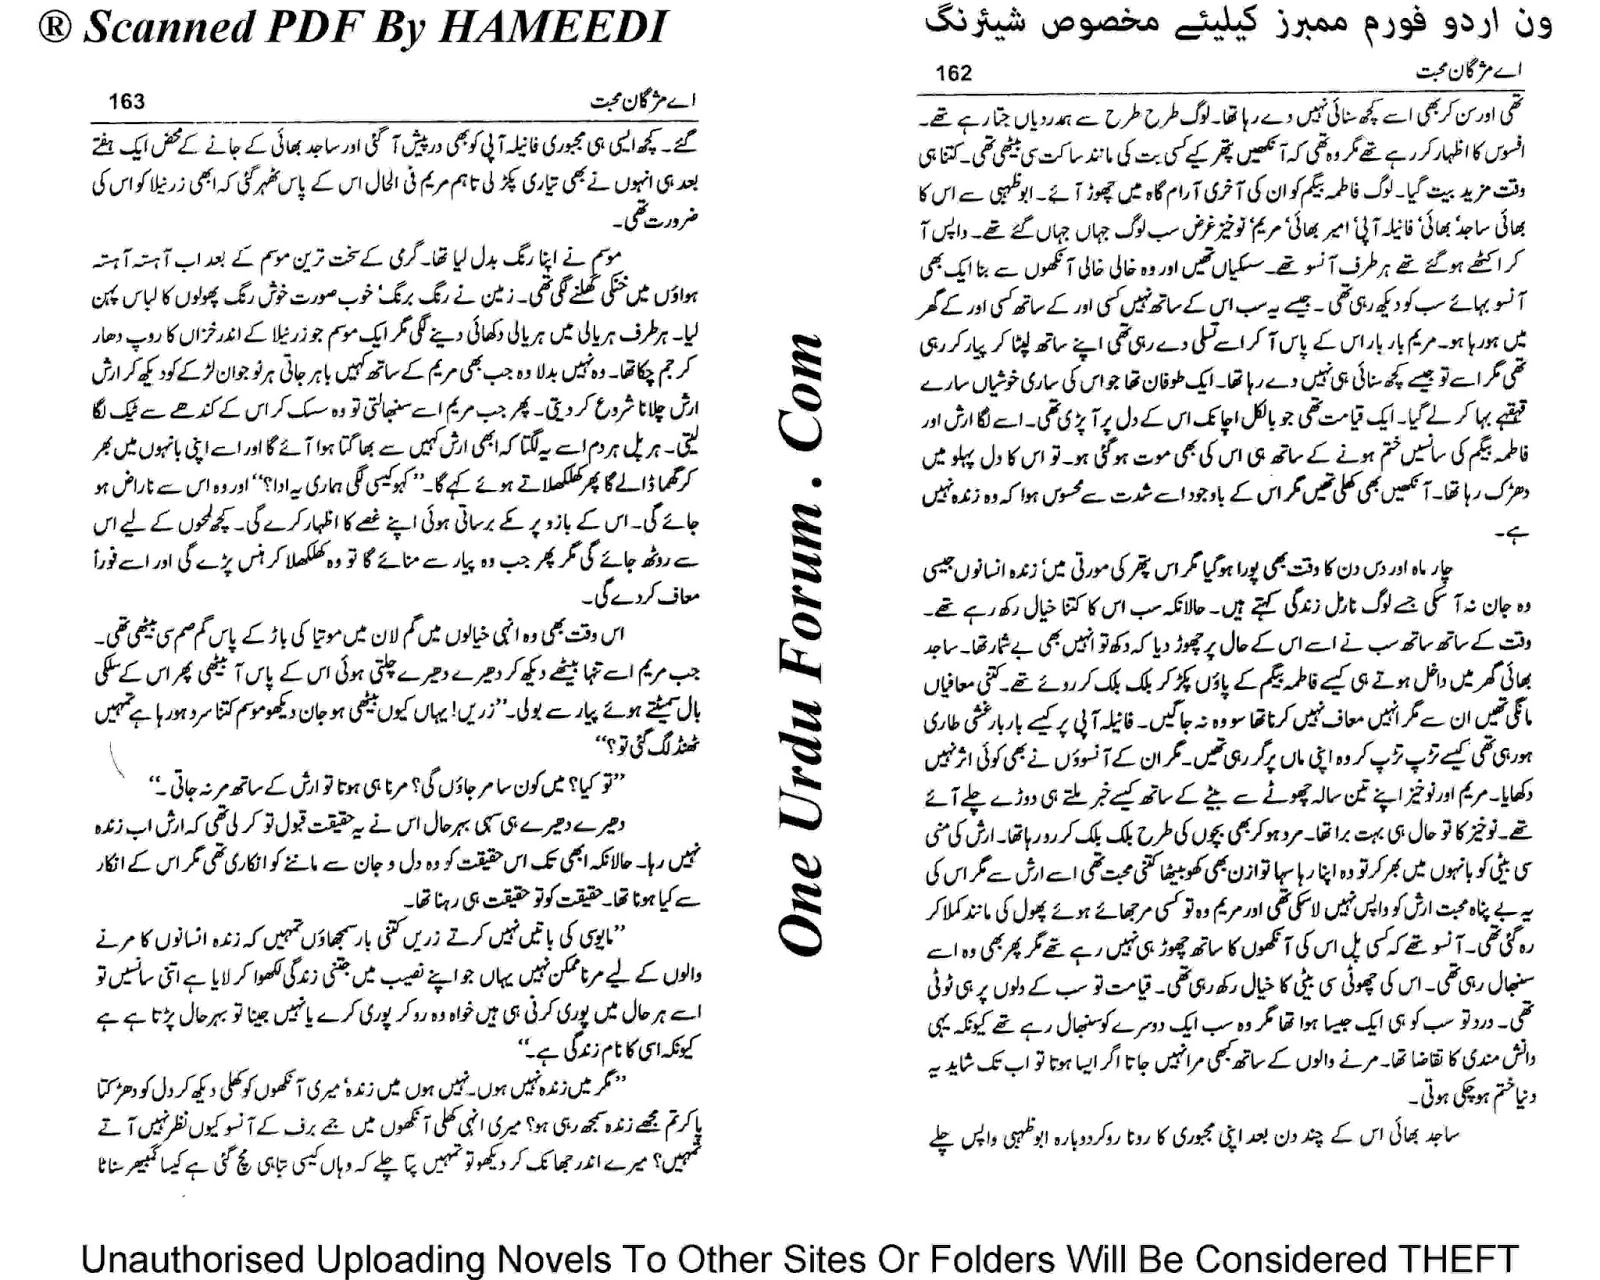 ® Scanned PDF By HAMEEDI
ون اردو فورم ممبرز کیلیئے مخصوص شیئرنگ
162 اے مژگان محبت
تھی اور سن کر بھی اسے کچھ سنائی نہیں دے رہا تھا۔ لوگ طرح طرح سے ہمدردیاں جتا رہے تھے۔
افسوس کا اظہار کر رہے تھے مگر وہ تھی کہ آنکھیں پتھر کیے کسی بت کی مانند ساکت سی بیٹھی تھی۔ کتنا ہی
وقت مزید بیت گیا۔ لوگ فاطمہ بیگم کو ان کی آخری آرام گاہ میں چھوڑ آئے۔ ابوظہبی سے اس کا
بھائی ساجد' بھائی' فانیلہ آپی' امیر بھائی' مریم' نوخیز غرض سب لوگ جہاں جہاں گئے تھے۔ واپس آ
کر اکٹھے ہو گئے تھے ہر طرف آنسو تھے۔ سسکیاں تھیں اور وہ خالی خالی آنکھوں سے بنا ایک بھی
آنسو بہائے سب کو دیکھ رہی تھی۔ جیسے یہ سب اس کے ساتھ نہیں کسی اور کے ساتھ کسی اور کے گھر
میں ہو رہا ہو۔ مریم بار بار اس کے پاس آ کر اسے تسلی دے رہی تھی اپنے ساتھ لپٹا کر پیار کر رہی
تھی مگر اسے تو جیسے کچھ سنائی ہی نہیں دے رہا تھا۔ ایک طوفان تھا جو اس کی ساری خوشیاں سارے
قہقہے بہا کر لے گیا۔ ایک قیامت تھی جو بالکل اچانک اس کے دل پر آ پڑی تھی۔ اسے لگا ارش اور
فاطمہ بیگم کی سانسیں ختم ہونے کے ساتھ ہی اس کی بھی موت ہو گئی ہو۔ تو اس کا دل پہلو میں
دھڑک رہا تھا۔ آنکھیں بھی کھلی تھیں مگر اس کے باوجود اسے شدت سے محسوس ہوا کہ وہ زندہ نہیں
ہے۔
چار ماہ اور دس دن کا وقت بھی پورا ہو گیا مگر اس پتھر کی مورتی میں' زندہ انسانوں جیسی
وہ جان نہ آ سکی جسے لوگ نارمل زندگی کہتے ہیں۔ حالانکہ سب اس کا کتنا خیال رکھ رہے تھے۔
وقت کے ساتھ ساتھ سب نے اسے اس کے حال پر چھوڑ دیا کہ دکھ تو انہیں بھی بے شمار تھا۔ ساجد
بھائی گھر میں داخل ہوتے ہی کیسے فاطمہ بیگم کے پاؤں پکڑ کر بلک بلک کر روئے تھے۔ کتنی معافیاں
مانگی تھیں ان سے مگر انہیں معاف نہیں کرنا تھا سو وہ نہ جاگیں۔ فانیلہ آپی پر کیسے بار بار غشی طاری
ہو رہی تھی کیسے تڑپ تڑپ کر وہ اپنی ماں پر گر رہی تھیں۔ مگر ان کے آنسوؤں نے بھی کوئی اثر نہیں
دکھایا۔ مریم اور نوخیز اپنے تین سالہ چھوٹے سے بیٹے کے ساتھ کیسے خبر ملتے ہی دوڑے چلے آئے
تھے۔ نوخیز کا تو حال ہی بہت برا تھا۔ مرد ہو کر بھی بچوں کی طرح بلک بلک کر رو رہا تھا۔ ارش کی منی
سی بیٹی کو بانہوں میں بھر کر تو وہ اپنا رہا سہا توازن بھی کھو بیٹھا کتنی محبت تھی اسے ارش سے مگر اس کی
یہ بے پناہ محبت ارش کو واپس نہیں لا سکی تھی اور مریم وہ تو کسی مرجھائے ہوئے پھول کی مانند کملا کر
رہ گئی تھی۔ آنسو تھے کہ کسی پل اس کی آنکھوں کا ساتھ چھوڑ ہی نہیں رہے تھے مگر پھر بھی وہ اسے
سنبھال رہی تھی۔ اس کی چھوٹی سی بیٹی کا خیال رکھ رہی تھی۔ قیامت تو سب کے دلوں پر ہی ٹوٹی
تھی۔ درد تو سب کو ہی ایک جیسا ہوا تھا مگر وہ سب ایک دوسرے کو سنبھال رہے تھے کیونکہ یہی
دانش مندی کا تقاضا تھا۔ مرنے والوں کے ساتھ کبھی مرا نہیں جاتا اگر ایسا ہوتا تو اب تک شاید یہ
دنیا ختم ہو چکی ہوتی۔
ساجد بھائی اس کے چند دن بعد اپنی مجبوری کا رونا رو کر دوبارہ ابوظہبی واپس چلے
One Urdu Forum . Com
163 اے مژگان محبت
گئے۔ کچھ ایسی ہی مجبوری فانیلہ آپی کو بھی درپیش آ گئی اور ساجد بھائی کے جانے کے محض ایک ہفتے
بعد ہی انہوں نے بھی تیاری پکڑ لی تاہم مریم فی الحال اس کے پاس ٹھہر گئی کہ ابھی زرنیلا کو اس کی
ضرورت تھی۔
موسم نے اپنا رنگ بدل لیا تھا۔ گرمی کے سخت ترین موسم کے بعد اب آہستہ آہستہ
ہواؤں میں خنکی گھلنے لگی تھی۔ زمین نے رنگ برنگ' خوب صورت خوش رنگ پھولوں کا لباس پہن
لیا۔ ہر طرف ہریالی میں ہریالی دکھائی دینے لگی مگر ایک موسم جو زرنیلا کے اندر خزاں کا روپ دھار
کر جم چکا تھا۔ وہ نہیں بدلا وہ جب بھی مریم کے ساتھ کہیں باہر جاتی ہر نوجوان لڑکے کو دیکھ کر ارش
ارش چلانا شروع کر دیتی۔ پھر جب مریم اسے سنبھالتی تو وہ سسک کر اس کے کندھے سے ٹیک لگا
لیتی۔ ہر پل ہر دم اسے یہ لگتا کہ ابھی ارش کہیں سے بھاگتا ہوا آئے گا اور اسے اپنی بانہوں میں بھر
کر گھما ڈالے گا پھر کھلکھلاتے ہوئے کہے گا۔ ''کہو کیسی لگی ہماری یہ ادا؟'' اور وہ اس سے ناراض ہو
جائے گی۔ اس کے بازو پر مکے برساتی ہوئی اپنے غصے کا اظہار کرے گی۔ کچھ لمحوں کے لیے اس
سے روٹھ جائے گی مگر پھر جب وہ پیار سے منائے گا تو وہ کھلکھلا کر ہنس پڑے گی اور اسے فوراً
معاف کر دے گی۔
اس وقت بھی وہ انہی خیالوں میں گم لان میں موتیا کی باڑ کے پاس گم صم سی بیٹھی تھی۔
جب مریم اسے تنہا بیٹھے دیکھ کر دھیرے دھیرے چلتی ہوئی اس کے پاس آ بیٹھی پھر اس کے سلکی
بال سمیٹتے ہوئے پیار سے بولی۔ ''زریں! یہاں کیوں بیٹھی ہو جان دیکھو موسم کتنا سرد ہو رہا ہے تمہیں
ٹھنڈ لگ گئی تو؟''
''تو کیا؟ میں کون سا مر جاؤں گی؟ مرنا ہی ہوتا تو ارش کے ساتھ مر نہ جاتی۔''
دھیرے دھیرے ہی سہی بہرحال اس نے یہ حقیقت قبول تو کر لی تھی کہ ارش اب زندہ
نہیں رہا۔ حالانکہ ابھی تک اس حقیقت کو وہ دل و جان سے ماننے کو انکاری تھی مگر اس کے انکار
سے کیا ہونا تھا۔ حقیقت کو تو حقیقت ہی رہنا تھا۔
''مایوسی کی باتیں نہیں کرتے زریں کتنی بار سمجھاؤں تمہیں کہ زندہ انسانوں کا مرنے
والوں کے لیے مرنا ممکن نہیں یہاں جو اپنے نصیب میں جتنی زندگی لکھوا کر لایا ہے اتنی سانسیں تو
اسے ہر حال میں پوری کرنی ہی ہیں خواہ وہ رو کر پوری کرے یا نہیں جینا تو بہرحال پڑتا ہے ہے
کیونکہ اسی کا نام زندگی ہے۔''
''مگر میں زندہ نہیں ہوں۔ نہیں ہوں میں زندہ' میری آنکھوں کو کھلی دیکھ کر دل کو دھڑکتا
پا کر تم مجھے زندہ سمجھ رہی ہو؟ میری انہی کھلی آنکھوں میں جمے برف کے آنسو کیوں نظر نہیں آتے
تمہیں؟ میرے اندر جھانک کر دیکھو تو تمہیں پتا چلے کہ وہاں کیسی تباہی مچ گئی ہے کیسا گمبھیر سناٹا
Unauthorised Uploading Novels To Other Sites Or Folders Will Be Considered THEFT